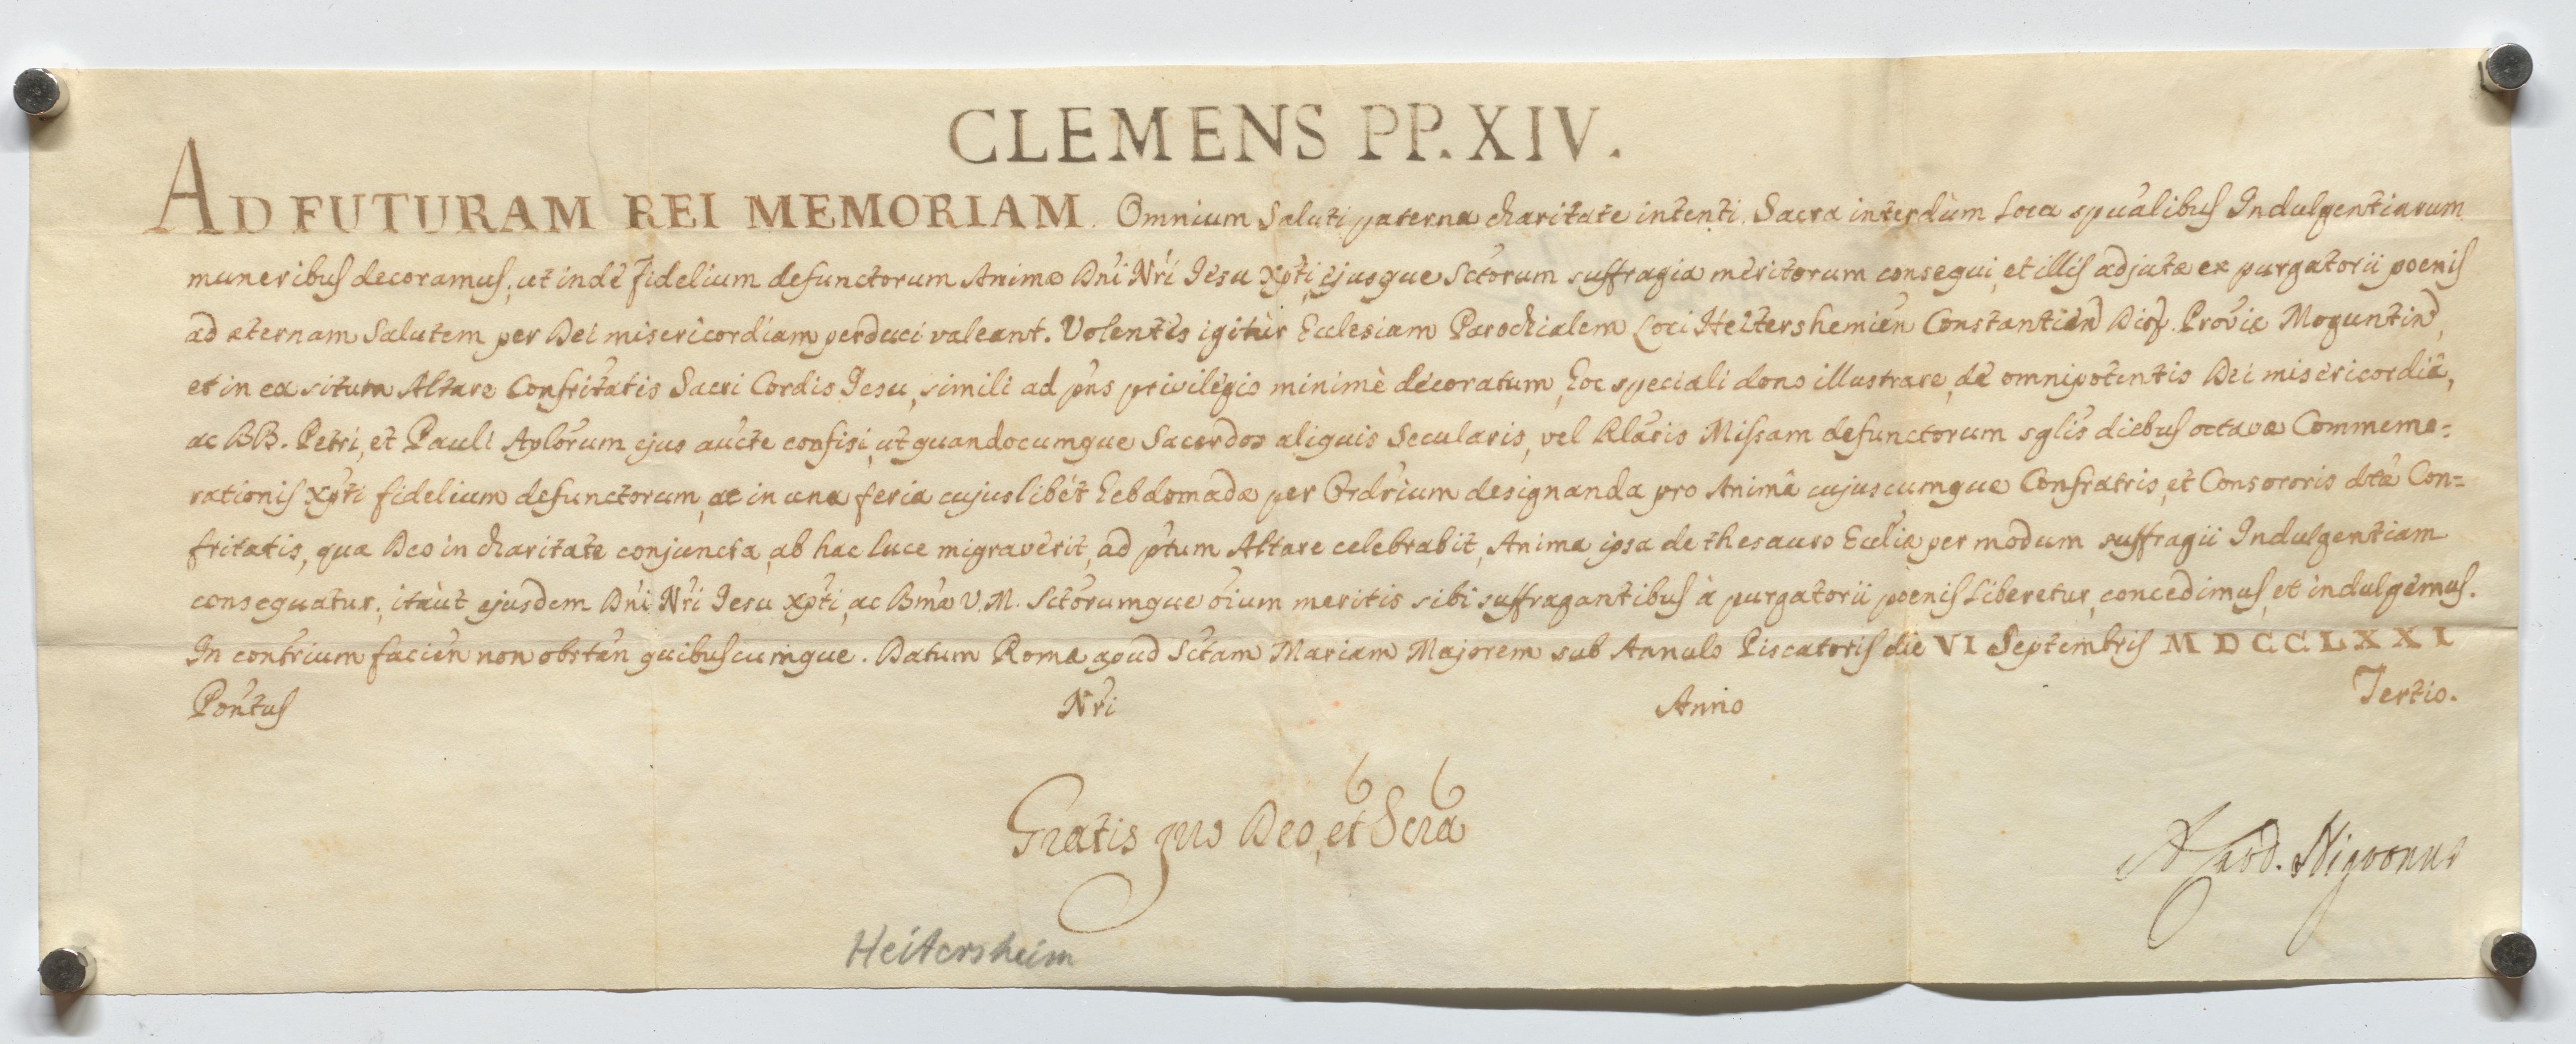 CLEMENS PP. XIV.
AD FUTURAM REI MEMORIAM. Omnium Saluti paterna charitate intenti. Sacra interdùm Loca spũalibus Indulgentiarum
muneribus decoramus, ut indè fidelium defunctorum Animæ Dñi Nr̃i Jesu Xp̃ti, ejusque Sctorum suffragia meritorum consequi, et illis adjutæ ex purgatorii poenis
ad æternam Salutem per Dei misericordiam perduci valeant. Volentes igitur Ecclesiam Parochialem Loci Heitershemieñ Constantieñ Dioc̃. Provĩæ Moguntiñ,
et in ea situm Altare Confritatis Sacri Cordis Jesu, simili ad pñs privilegio minimè decoratum, hoc speciali dono illustrare, de omnipotentis Dei misericordia,
ac BB. Petri, et Pauli Aplorum ejus aucte confisi, ut quandocumque Sacerdos aliquis Secularis, vel Rlaris Missam defunctorum sglis diebus octavæ Commemo=
rationis Xp̃ti fidelium defunctorum, ac in una feria cujuslibet hebdomadæ per Ordrium designanda pro Animâ cujuscumque Confratris, et Consororis dtæ Con=
fritatis, quæ Deo in charitate conjuncta, ab hac luce migraverit, ad ptum Altare celebrabit, Anima ipsa de thesauro Eccliæ per modum suffragii Indulgentiam
consequatur, itaùt ejusdem Dñi Nr̃i Jesu Xp̃ti, ac Bmæ V. M. Sctorumque oĩum meritis sibi suffragantibus à purgatorii poenis liberetur, concedimus, et indulgemus.
In contrium facieñ non obstañ quibuscumque. Datum Romæ apud Sctam Mariam Majorem sub Annulo Piscatoris die VI Septembris MDCCLXXI
Pontus Nr̃i Anno Tertio.
Gratis pro Deo, et Scra
A. Card. Nigronus
Heitersheim